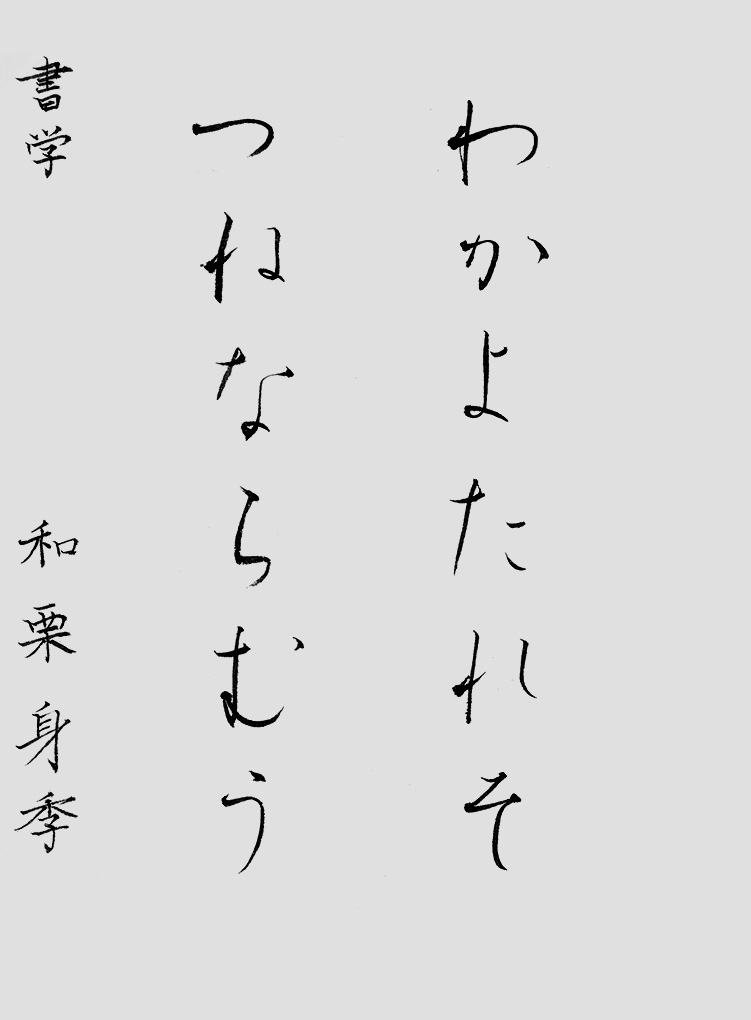 わかよたれそ
つねならむう
書学 和栗身季